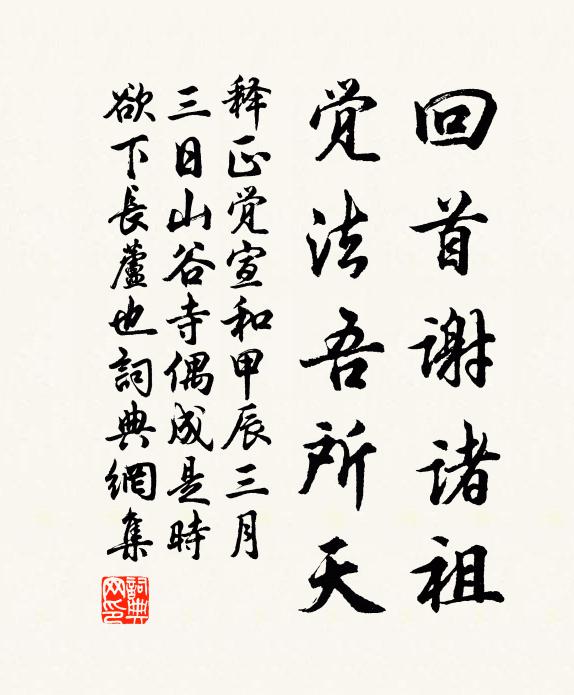 回首谢诸祖
觉法吾所天
释正觉宣和甲辰三月
三日山谷寺偶成是時
欲下長蘆也詞典網集
詞典網印